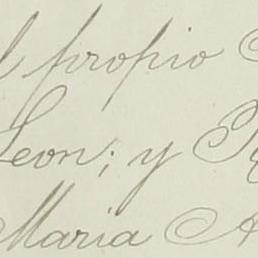 l propio
Leon; y
Maria A